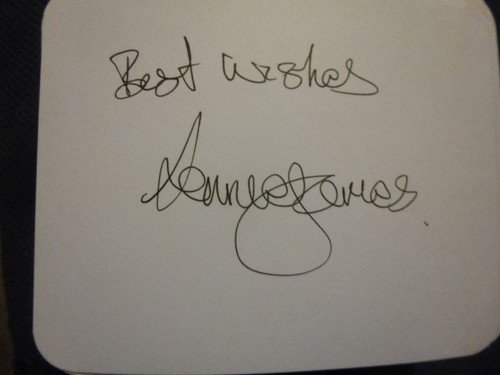 Best Wishes
Annie Jones